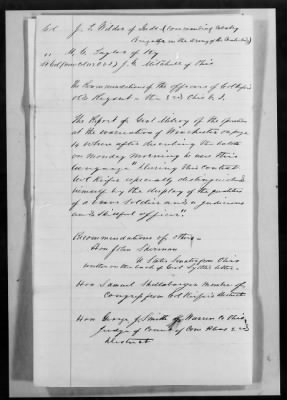 Col J. T. Wilder of Ind. (Commanding Cavalry
Brigade in the Army of the Cumberland)
" M. C. Taylor of Ky
J. G. Mitchell of Ohio
The Recommendation of the Officers of Col Keifer
old Regent - the 3rd Ohio V. I.
The Report of Genl Milroy of the operations
at the evacuation of Winchester on page
14 where after describing the battle
on Monday morning he uses this
language "During this contest
Col Keifer especially distinguished
himself by the display of the qualities
of a brave soldier and a judicious
and skillful officer"
Recommendations of others -
Hon John Sherman
U States Senator from Ohio
written on the back of Genl letter -
Hon Samuel Shellabarger Member of
Congress from Col Keifer's District
Hon George J. Smith of Warren Co Ohio
Judge of Court of Com Pleas 2nd
District